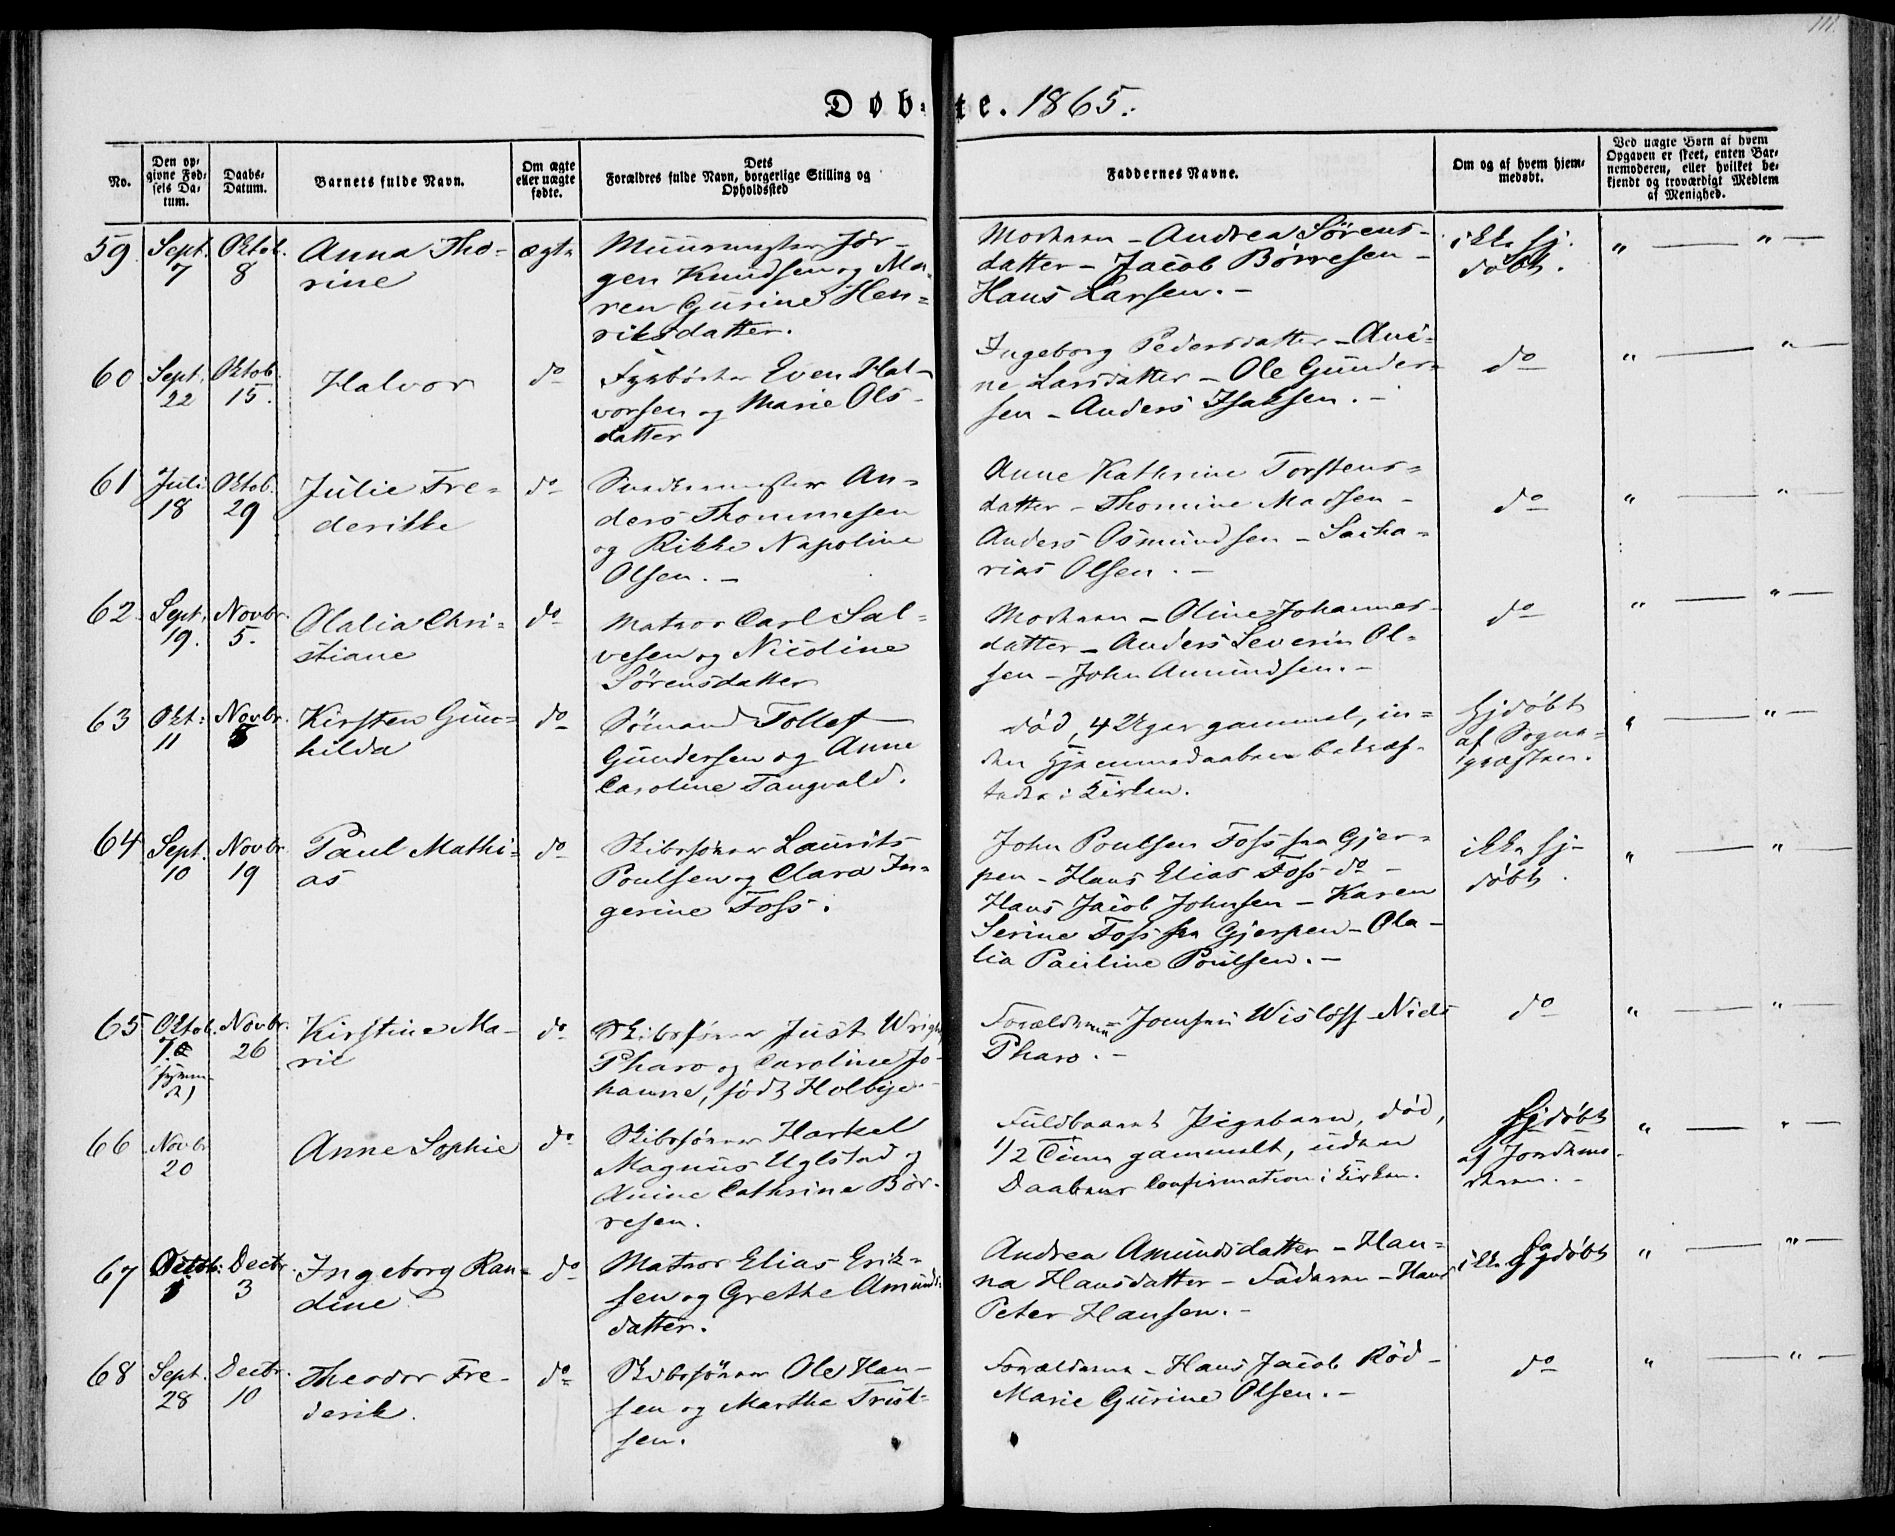 111.
Døb-te. 1865.
No.
Den op-
givne Fød-
sels Da-
tum.
Daabs-
Datum.
Barnets fulde Navn.
Om ægte
eller uægte
fødte.
Dets
Forældres fulde Navn, borgerlige Stilling og
Opholdssted
Faddernes Navne.
Om og af hvem hjem-
medøbt.
Ved uægte Børn af hvem
Opgaven er skeet, enten Bar-
nemoderen, eller hvilket be-
kjendt og troværdigt Medlem
af Menighed.
59. Sept. 7 Oktob. 8 Anna Tho-
rine
ægte
Muurmester Jør-
gen Knudsen og Ma-
ren Gurine Hen-
riksdatter.
Moderen - Andrea Sørens-
datter - Jacob Børresen -
Hans Larsen. -
ikke hj.
døbt.
" — " —
60 Sept. 22 Oktob. 15. Halvor
do
Fyrbøter Even Hal-
vorsen og Marie Ols-
datter
Ingeborg Pedersdatter - Ani-
ne Larsdatter - Ole Gunder-
sen - Anders Isaksen. -
do
" — " —
61 Juli 18 Oktob. 29 Julie Fre-
derikke
do
Snedkermester An-
ders Thommesen
og Rikke Napoline
Olsen. -
Anne Kathrine Torstens-
datter - Thomine Madsen -
Anders Osmundsen - Sacha-
rias Olsen. -
do
" — " —
62. Sept. 19. Novbr. 5. Olalia Chri-
stiane
do
Matros Carl Sal-
vesen og Nicoline
Sørensdatter
Moderen - Oline Johannes-
datter - Anders Severin Ol-
sen - John Amundsen. -
do
" — " —
63 Okt: 11 Novbr. 5 Kirsten Gun-
hilda
do
Sømand Tollef
Gundersen og Anne
Caroline Tangvald.
død, 4 Uger gammel, in-
den Hjemmedaaben bekræf-
tedes i Kirken.
Hjdøbt
af Sogne-
præsten.
" — " —
64 Sept. 10 Novbr. 19 Paul Mathi-
as
do
Skibsfører Laurits
Poulsen og Clara In-
gerine Foss.
John Poulsen Foss fra Gjer-
pen - Hans Elias Foss do -
Hans Jacob Johnsen - Karen
Serine Foss fra Gjerpen - Ola-
lia Pauline Poulsen. -
ikke hj-
døbt.
" — " —
65 Oktob. Novbr. 26 Kirstine Ma-
rie
do
Skibsfører Just Wright
Pharo og Caroline Jo-
hanne, født Holbye -
Forældrene - Jomfru Wisløff - Niels
Pharo. -
do
" — " —
66 Novbr 20 Anne Sophie
do
Skibsfører Harkel
Magnus Uglstad og
Anine Cathrine Bør-
resen.
Fuldbaaret Pigebarn, død,
1/2 Time gammelt, uden
Daabens Confirmation i Kirken.
Hjdøbt
af Jordemo-
deren. -
" — " —
67 Octob: Decbr. 3 Ingeborg Ran-
dine
do
Matros Elias Erik-
sen og Grethe Amunds-
datter.
Andrea Amundsdatter - Han-
na Hansdatter - Faderen - Hans
Peter Hansen. -
ikke Hjdøbt
" — " —
68 Sept. 28 Decbr. 10 Theodor Fre-
derik.
do
Skibsfører Ole Han-
sen og Marthe Trul-
sen.
Forældrene - Hans Jacob Rød -
Marie Gurine Olsen. -
do
" — " —